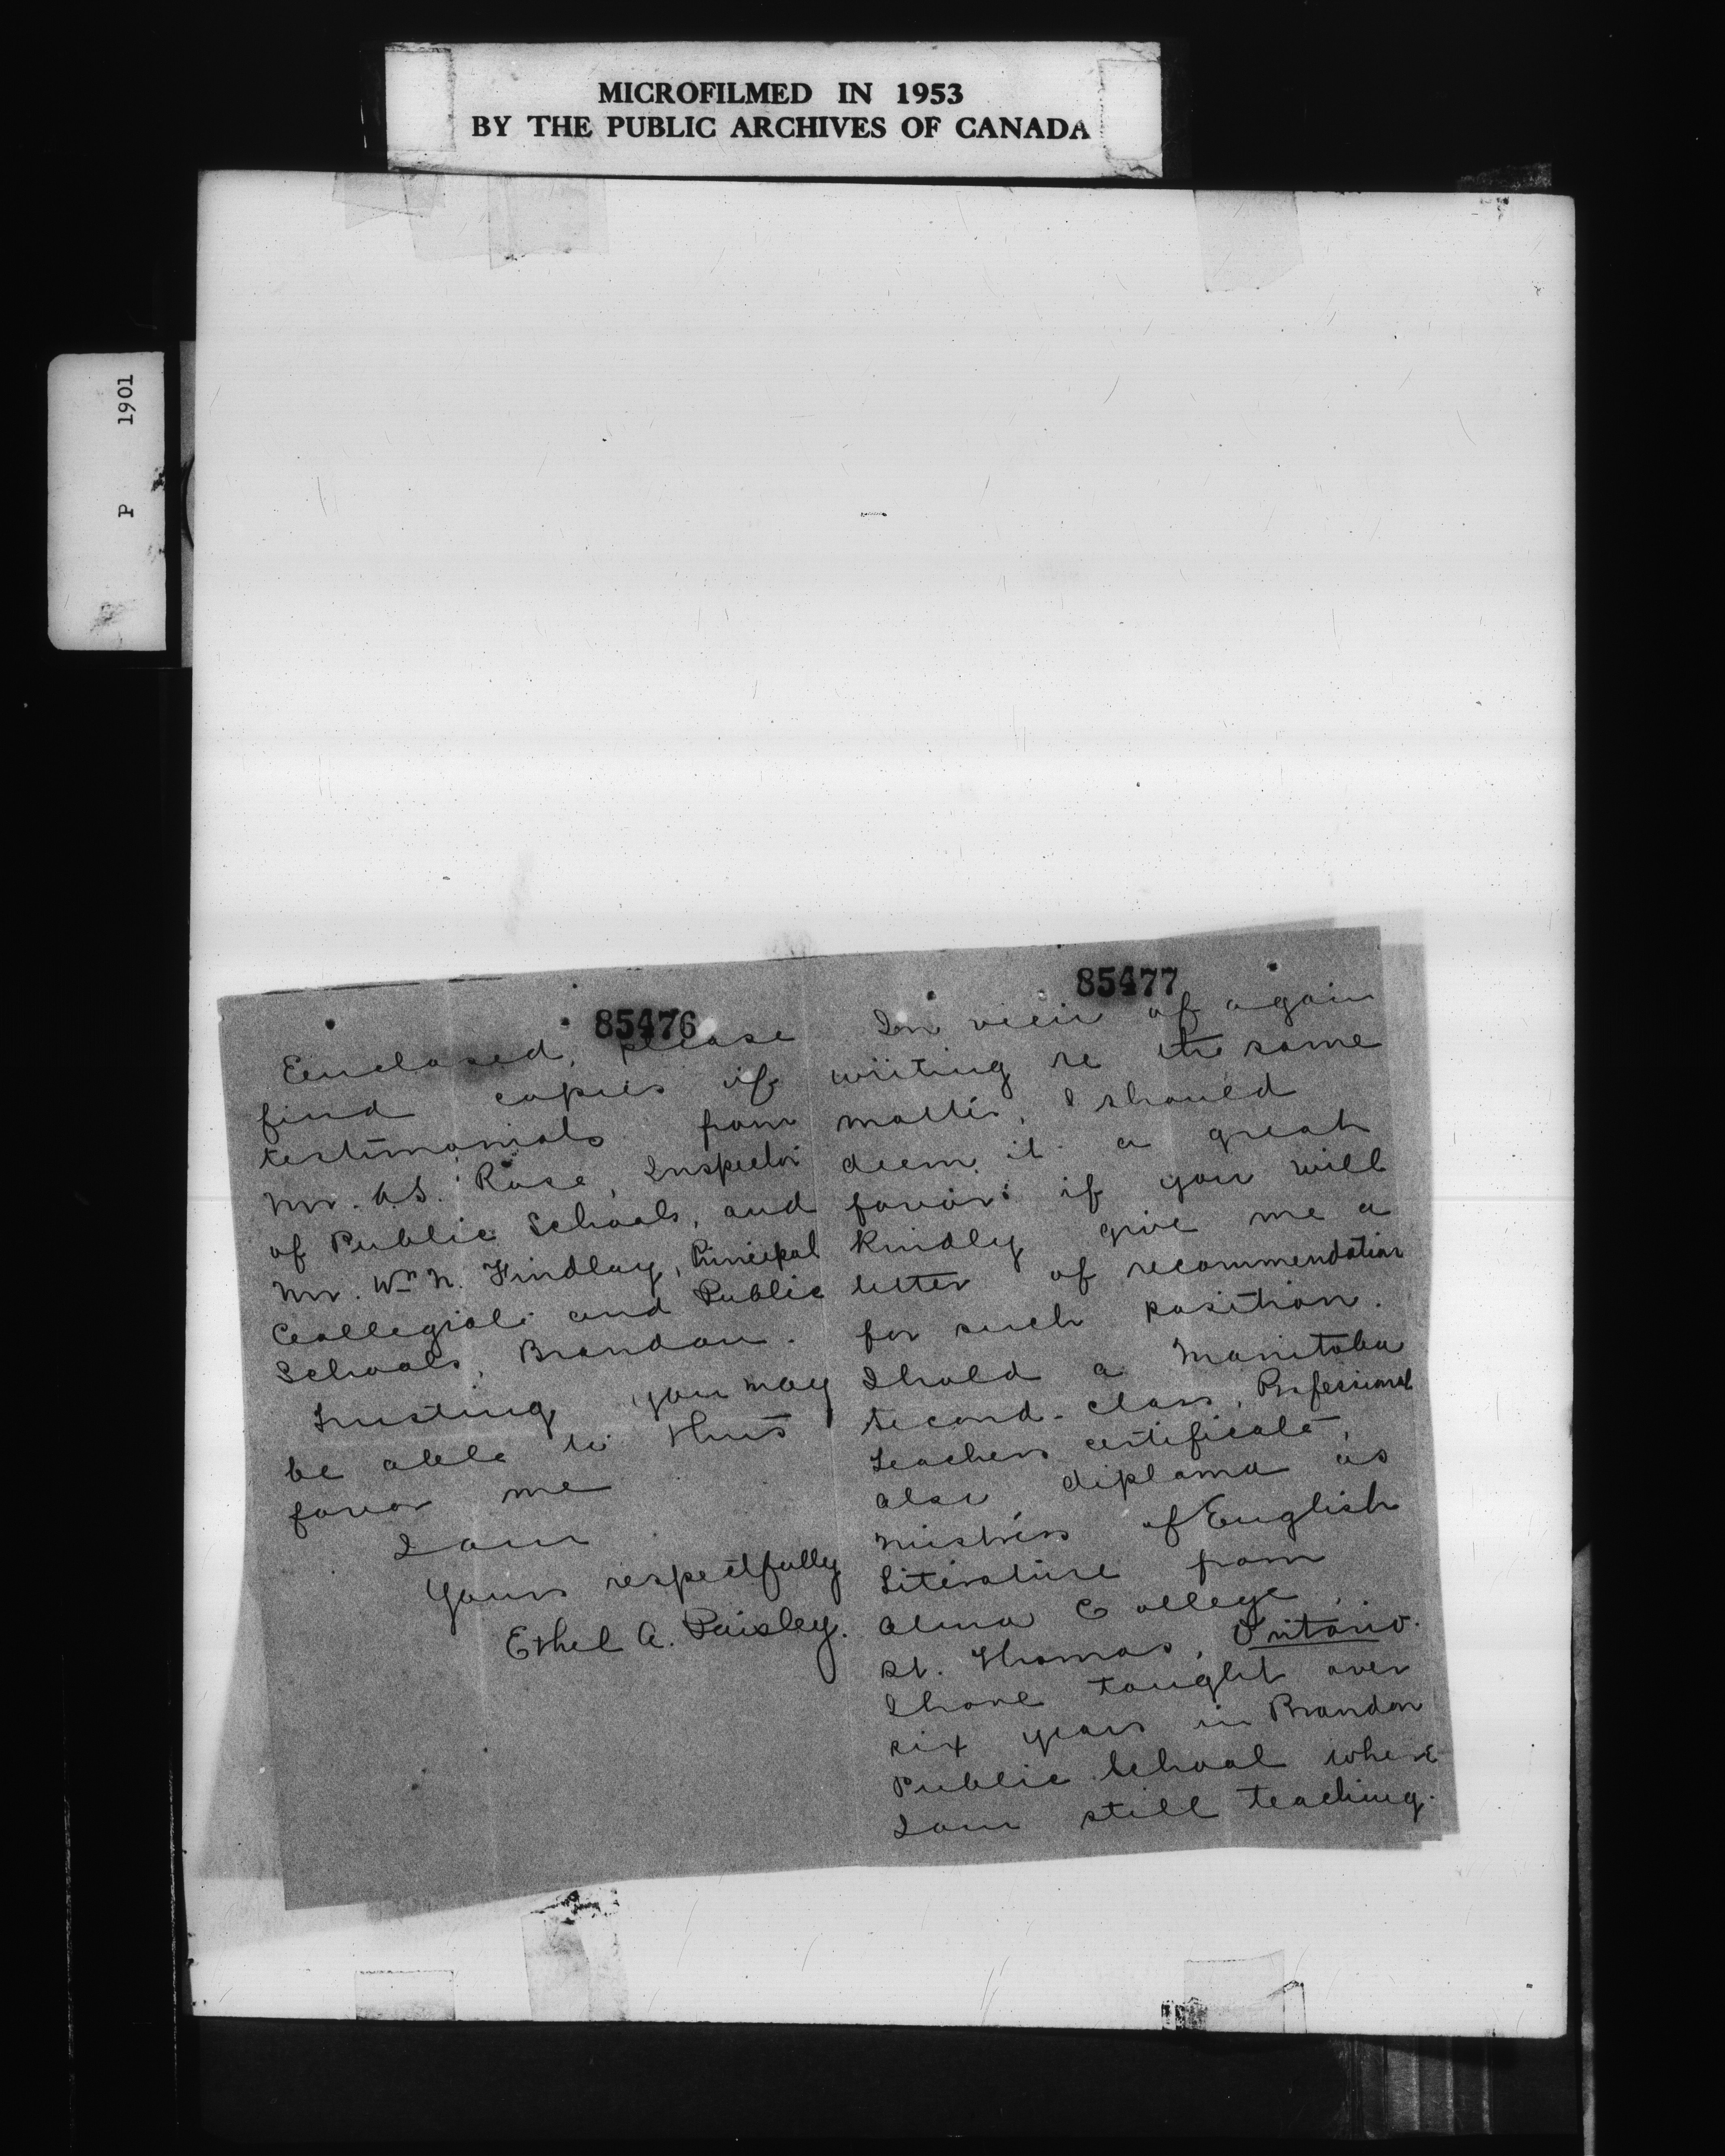 MICROFILMED IN 1953
BY THE PUBLIC ARCHIVES OF CANADA
P 1901
85476
Enclosed, please
find copies of
testimonials from
Mr. A.S. Rose, Inspector
of Public Schools, and
Mr. Wm N. Findlay, Principal
Collegiate and Public
Schools, Brandon.
Trusting you may
be able to thus
favor me
I am
Yours respectfully
Ethel A. Paisley.
85477
In view of again
writing re the same
matter, I should
deem it a great
favor if you will
kindly give me a
letter of recommendation
for such position.
I hold a Manitoba
second-class, Professional
Teachers certificate,
also diploma as
Mistress of English
Literature from
Alma College,
St. Thomas, Ontario.
I have taught over
six years in Brandon
Public School where
I am still teaching.